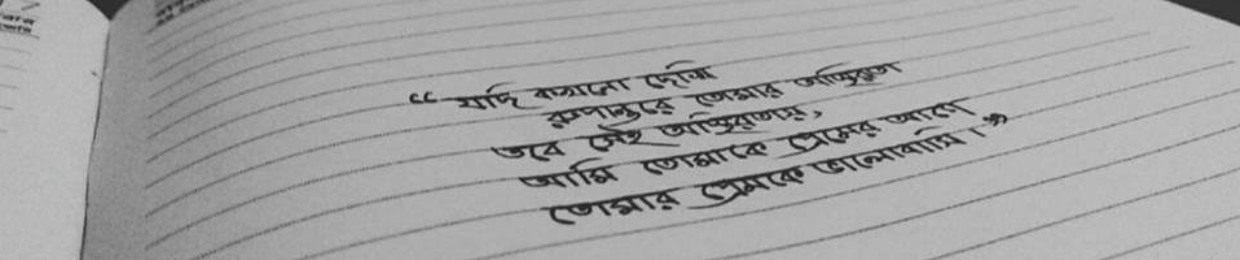 “ যদি কখনো দেখি
রূপান্তরে তোমার অস্থিরতা
তবে সেই অস্থিরতায়,
আমি তোমাকে প্রেমের আগে
তোমার প্রেমকে ভালোবাসি। ”